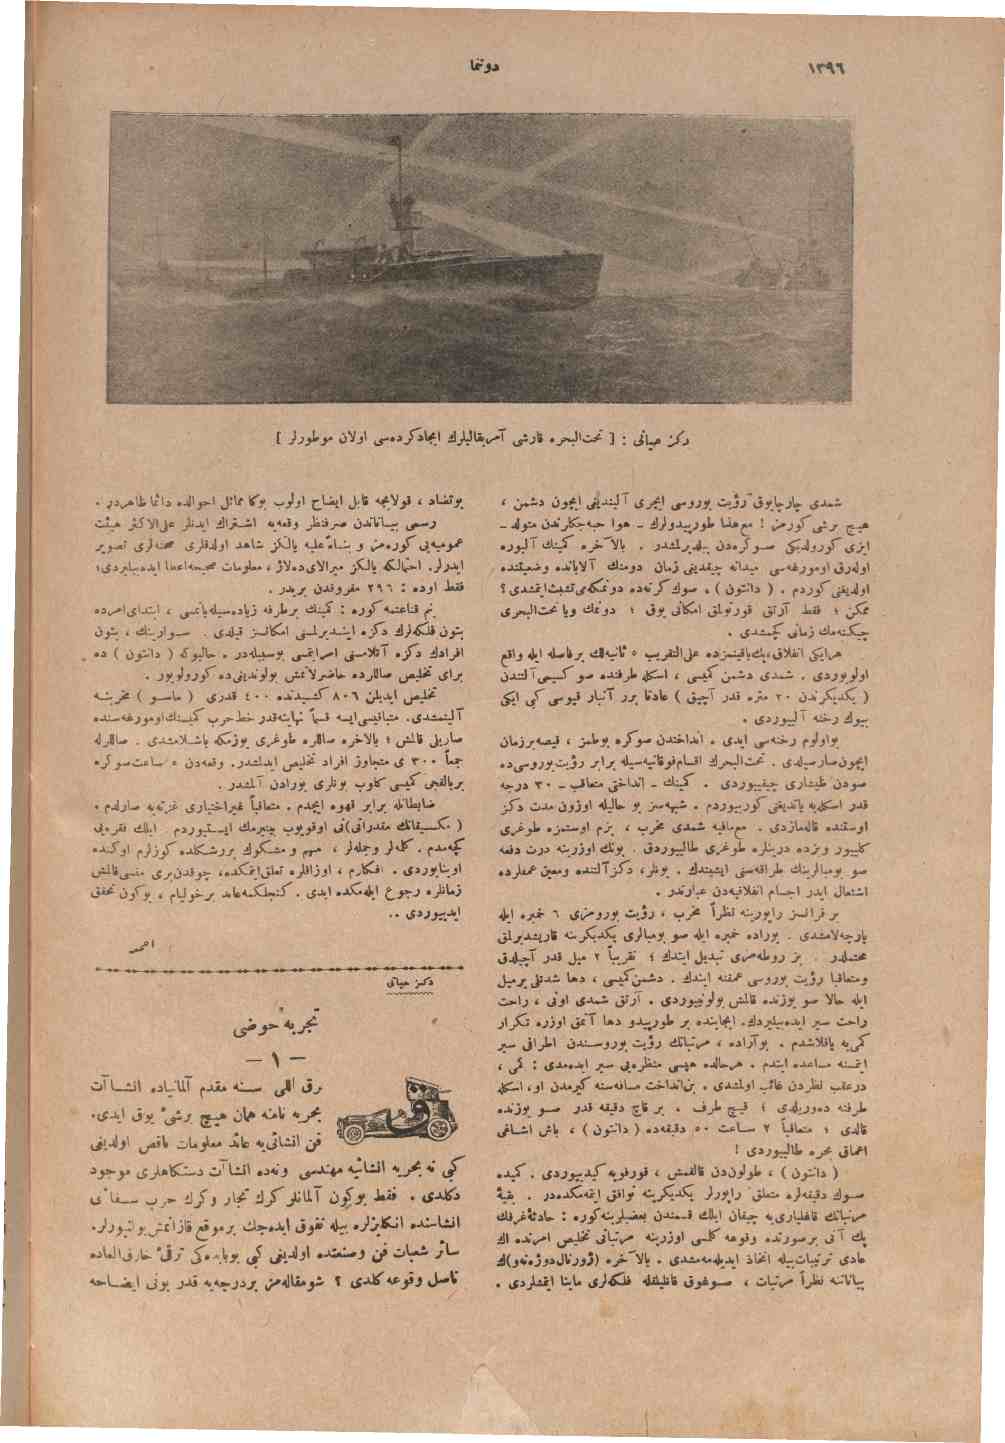 ١٣٩٦
دوننما
دكز حياتى : [ تحت‌البحره قارشى آمريقاليلرك ايجادكرده‌سى اولان موطورلر ]
شمدى چارچابوق رؤيت بوروسى ايچرى آليندیغى ايچون دشمن ،
هيچ برشى كورمز ! مع‌هذا طورپيدولرك ـ هوا حبه‌جكلرندن متولد ـ
ايزى كورولديكى صوكره‌دن بيلديرلمشدر . بالآخره كمينك آلبوره
اوله‌رق اومورغه‌سى ميدانه چيقديغى زمان دومنك آلاباندە وضعيتنده
اولديغنى كوردم . ( دانتون ) ، صوك كرته‌ده دونمكه‌مى تشبث‌ايتمشدى ؟
ممكن ؛ فقط آرتق قورتولمق امكانى يوق ؛ دونمك ويا تحت‌البحرى
چيكنه‌مك زمانى كچمشدى .
هرايكى انفلاق ، پك ياقينمزده على‌التقريب ٥ ثانيه‌لك برفاصله ايله واقع
اولويوردى . شمدى دشمن كميسى ، اسكله طرفنده صو كسيمى آلتندن
( يكديكرندن ٢٠ متره قدر آچيق ) عادتا برر آنبار قپوسى كبى ايكى
بيوك رخنه آلييوردى .
بو اولوم رخنه‌سى ايدى . انداختدن صوكره بوطمز ، قيصه‌برزمان
ايچون صارسيلدى . تحت‌البحرك اقسام فوقانيه‌سيله برابر رؤيت‌بوروسى‌ده
صودن طيشارى چيقييوردى . كمينك ـ انداختى متعاقب ـ ٣٠ درجه
قدر اسكله‌يه ياتديغنى كورييوردم . شبهه‌سز بو حاليله اوزون مدت دكز
اوستنده قاله‌مازدى . مع‌مافيه شمدى مخرب ، بزم اوستمزه طوغرى
كلييور وبزده درينلره طوغرى طالييوردق . بونك اوزرينه درت دفعه
صو بومبالرينك طراقه‌سنى ايشيتدك . بونلر ، دكز آلتنده ومعين عمقلرده
اشتعال ايدر اجسام انفلاقيه‌دن عبارتدر .
بر فرانسز راپورينه نظراً مخرب ، رؤيت بورومزى ٦ خمبره ايله
پارچه‌لامشدى . بوراده خمبره ايله صو بومبالرى يكديكرينه قاريشديرلمق
محتملدر . بز روطه‌مزى تبديل ايتدك ؛ تقريباً ٢ ميل قدر آچيلدق
ومتعاقباً رؤيت بوروسى عمقنه ايندك . دشمن‌كميسى ، دها شدتلى برميل
ايله حالا صو يوزنده قالمش بولونييوردى . آرتق شمدى اونى ، راحت
راحت سير ايده‌بيليردك . ايجابنده بر طورپيدو دها آتمق اوزره تكرار
كمى‌يه ياقلاشدم . بوآراده ، مرتباتك رؤيت بوروسندن اطرافى سير
ايتمسنه مساعده ايتدم . هرحالده هپسى منظره‌يى سير ايده‌مدى : كمى ،
درعقب نظردن غائب اولمشدى . بن‌انداخت مسافه‌سنه كيرمدن او، اسكله
طرفنه ده‌وريلدى ؛ قيچ طرف . بر قاچ دقيقه قدر صو يوزنده
قالدى ؛ متعاقباً ٢ ساعت ٥٠ دقيقه‌ده ( دانتون ) ، باش اشاغى
اعماق بحره طالييوردى !
( دانتون ) ، طولون‌دن قالقمش ، قورفويه كيدييوردى . كميده
صوك دقيقه‌لره متعلق راپورلر يكديكرينه توافق ايتمه‌مكده‌در . بقيهٔ
مرتباتك قاقليارى‌يه چيقان ايلك قسمندن بعضيلرينه‌كوره : حادثهٔ غرقك
پك آنى برصورتده وقوعه كلمسى اوزرينه مرتباتى تخليص امرنده اك
عادى ترتيبات‌بيله اتخاذ ايديله‌مه‌مشدى . بالآخره (ژورنال‌دوژه‌نه‌و)ك
بياناتنه نظراً مرتبات ، صوغوق قانليلقله فلكه‌لرى ماينا ايتمشلردى .
بوتضاد ، قولايجه قابل ايضاح اولوب بوكا مماثل احوالده دائما ظاهردر .
رسمى بياناتدن صرفنظر وقعه‌يه اشتراك ايدنلر على‌الاكثر هيئت
عموميه‌يى كوره‌مز و بناءً‌عليه يالكز شاهد اولدقلرى صحنه‌لرى تصوير
ايدرلر. احتمالكه يالكز ميرالاى‌ده‌لاژ ، معلومات صحيحه‌اعطا ايده‌بيليردى ؛
فقط اوده : ٢٩٦ مفروقدن بريدر .
بنم قناعتمه كوره : كمينك برطرفه زياده‌سيله‌ياتمسى ، ابتداى‌امرده
بتون فلكه‌لرك دكزه اينديرلمسنى امكانسز قيلدى . سوارينك ، بتون
افرادك دكزه آتلامسنى امرايتمسى بوسببله‌در . حالبوكه ( دانتون ) ده
براى تخليص صاللرده حاضرلانمش بولونديغى‌ده كورولويور .
تخليص ايديلن ٨٠٦ كشيدنده ٤٠٠ قدرى ( ماسو ) مخربنه
آلينمشدى. متباقيسى‌ايسه قسماً نهايته‌قدر خط‌حرب كميسنك‌اومورغه‌سنده
صاريلى قالمش ؛ بالآخره صاللره طوغرى يوزمكه باشلامشدى . صاللرله
جمعاً ٣٠٠ ى متجاوز افراد تخليص ايدلمشدر. وقعه‌دن ٥ ساعت‌صوكره
بربالقجى كميسى كلوب بونلرى بورادن آلمشدر .
ضابطانله برابر قهوه ايچدم . متعاقباً غيراختيارى غزته‌يه صارلدم .
( مكسيقانك مقدراتى)نى اوقويوب بيتيرمك ايستييوردم . ايلك فقره‌يى
كچه‌مدم . كله‌لر وجمله‌لر ، مبهم و مشكوك بررشكلده كوزلرم اوكنده
اويناييوردى . افكارم ، اوزاقلره تعلق‌ايتمكده، چوقدن‌برى منسى‌قالمش
زمانلره رجوع ايله‌مكده ايدى . كنجلكمه‌عائد برخوليام ، بوكون تحقق
ايدييوردى ..
احمد
دكز حياتى
تجربه حوضى
— ١ —
برق اللى سنه مقدم آلمانياده انشاآت
بحريه نامنه همان هيچ برشىٔ يوق ايدى.
فن انشائى‌يه عائد معلومات ناقص اولديغى
كبى نه بحريه انشائيه مهندسى ونه‌ده انشاآت دستكاهلرى موجود
دكلدى . فقط بوكون آلمانلر كرك تجار وكرك حرب سفائنى
انشاسنده انكليزلره بيله تفوق ايده‌جك برموقع قازانمش‌بولنيورلر.
سائر شعبات فن وصنعتده اولديغى كبى بوبابده‌كى ترقئ خارق‌العاده
ناصل وقوعه‌كلدى ؟ شومقاله‌مز بردرجه‌يه قدر بونى ايضاحه